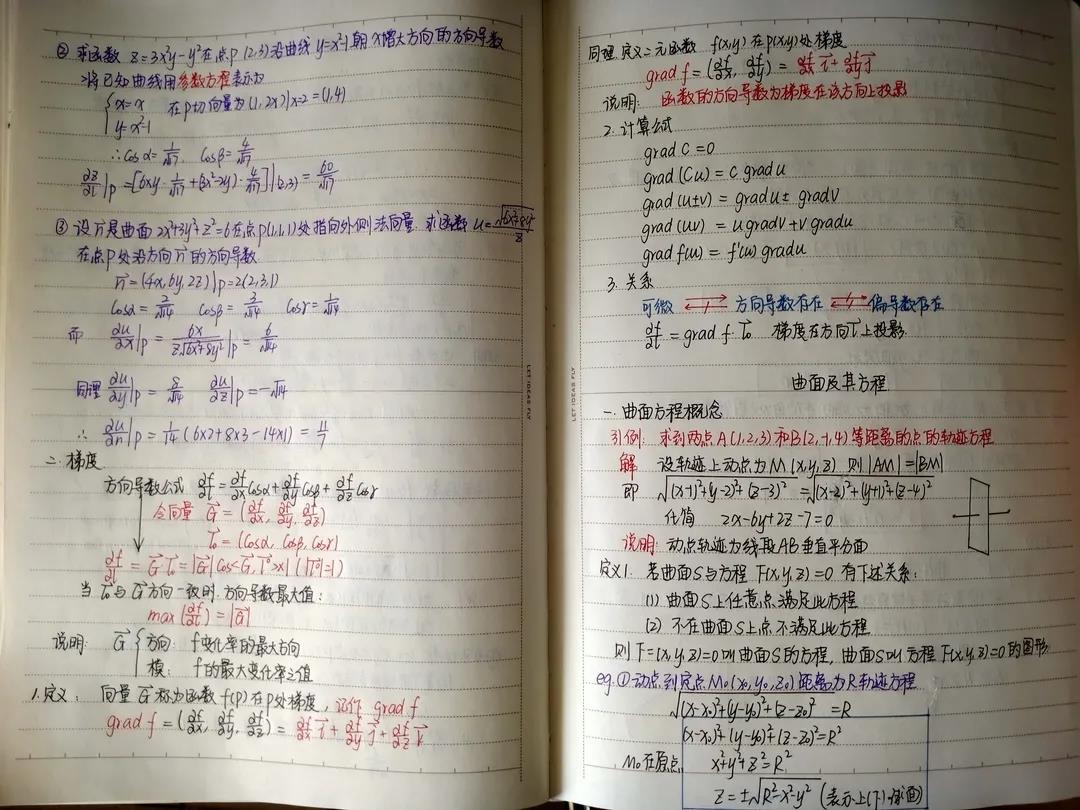 ② 求函数 z=3x²y-y² 在点P(2,3)沿曲线 y=x²-1 朝 x增大方向的方向导数
>将已知曲线用参数方程表示为
{x=x
y=x²-1
在P切向量为(1,2x)|x=2=(1,4)
∴cosα=1/√17, cosβ=4/√17
∂z/∂l|P=[6xy·1/√17+(3x²-2y)·4/√17]|(2,3)=60/√17
③ 设n⃗是曲面 2x²+3y²+z²=6在点P(1,1,1)处指向外侧法向量. 求函数 u=√(6x²+8y²)/z
在点P处沿方向n⃗的方向导数
n⃗=(4x,6y,2z)|P=2(2,3,1)
cosα=2/√14 cosβ=3/√14 cosγ=1/√14
而 ∂u/∂x|P=6x/(z√(6x²+8y²))|P=6/√14
同理 ∂u/∂y|P=8/√14 ∂u/∂z|P=-√14
∴ ∂u/∂n|P=1/14(6×2+8×3-14×1)=11/7
二. 梯度
方向导数公式 ∂f/∂l=∂f/∂x cosα+∂f/∂y cosβ+∂f/∂z cosγ
令向量 G⃗=(∂f/∂x, ∂f/∂y, ∂f/∂z)
l⃗₀=(cosα, cosβ, cosγ)
∂f/∂l=G⃗·l⃗₀=|G⃗|cos<G⃗,l⃗⁰>x| (|l⃗⁰|=1)
当l⃗₀与G⃗方向一致时.方向导数最大值:
max(∂f/∂l)=|G⃗|
说明: G⃗{方向: f变化率的最大方向
模: f的最大变化率之值
1.定义: 向量G⃗称为函数f(P)在P处梯度, 记作 grad f
grad f=(∂f/∂x, ∂f/∂y, ∂f/∂z)=∂f/∂x i⃗+∂f/∂y j⃗+∂f/∂z k⃗
LET IDEAS FLY
同理.定义二元函数 f(x,y)在P(x,y)处梯度
grad f=(∂f/∂x, ∂f/∂y)=∂f/∂x i⃗+∂f/∂y j⃗
说明: 函数的方向导数为梯度在该方向上投影
2.计算公式
grad C=0
grad (Cu)=C grad u
grad (u±v)=gradu±gradv
grad (uv)=u gradv+v gradu
grad f(u)=f'(u) gradu
3.关系
可微 ⇄ 方向导数存在 ⇄ 偏导数存在
∂f/∂l=grad f·l⃗₀ 梯度在方向l⃗上投影.
LET IDEAS FLY
曲面及其方程
一.曲面方程概念
引例: 求到两点A(1,2,3)和B(2,-1,4)等距离的点的轨迹方程
解 设轨迹上动点为M(x,y,z) 则|AM|=|BM|
即 √((x-1)²+(y-2)²+(z-3)²)=√((x-2)²+(y+1)²+(z-4)²)
化简 2x-6y+2z-7=0
说明: 动点轨迹为线段AB垂直平分面
定义1. 若曲面S与方程F(x,y,z)=0有下述关系:
(1)曲面S上任意点满足此方程
(2)不在曲面S上点不满足此方程
则F=(x,y,z)=0叫曲面S的方程, 曲面S叫方程F(x,y,z)=0的图形
eg.①动点到定点M₀(x₀,y₀,z₀)距离为R轨迹方程
√((x-x₀)²+(y-y₀)²+(z-z₀)²)=R
(x-x₀)²+(y-y₀)²+(z-z₀)²=R²
M₀在原点, x²+y²+z²=R²
z=±√(R²-x²-y²) (表示上(下)球面)